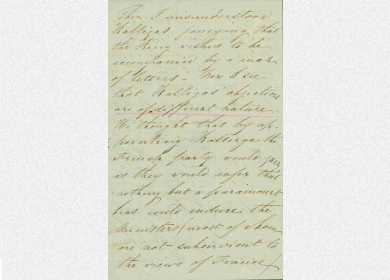 Then I misunderstood
Kalligas fancying that
the King wished to be
accompanied by a man
of letters - Now I see
that Kalligas' objections
are of different nature
He thought that by ap-
pointing Kallerge the
French party would gain
as they would infer that
nothing but a paramount
bias could induce the
Ministers (most of whom
are not subservient to
the views of France)